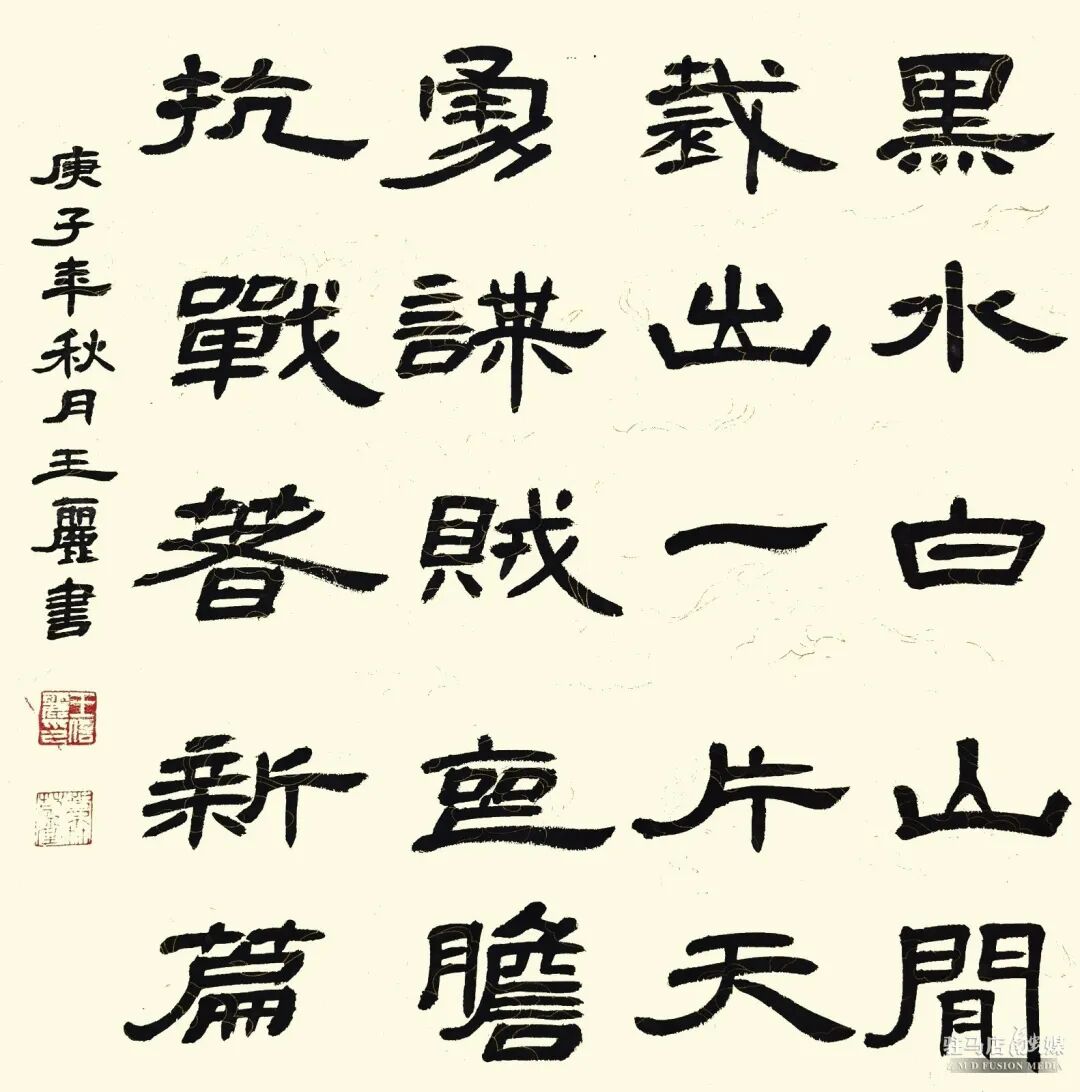 黑水白山間
裁出一片天
勇謀賊喪膽
抗戰著新篇
庚子年秋月王麗書
驻马店融媒
Z.M.D FUSION MEDIA